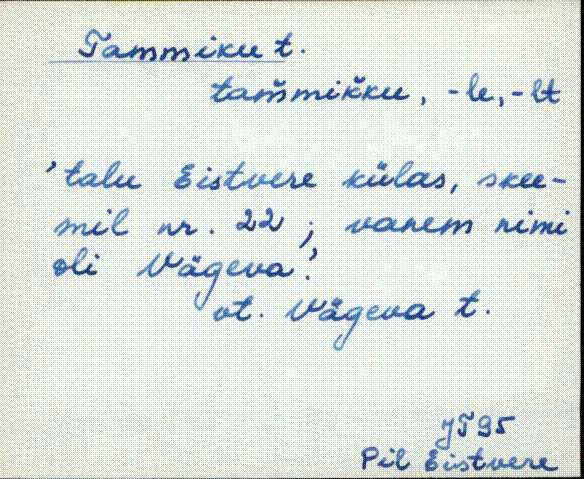 Tammiku t.
tam̆mik̆ku, -le, -lt
'talu Eistvere külas, skee-
mil nr. 22; vanem nimi
oli Vägeva'.
vt. Vägeva t.
JT95
Pil Eistvere